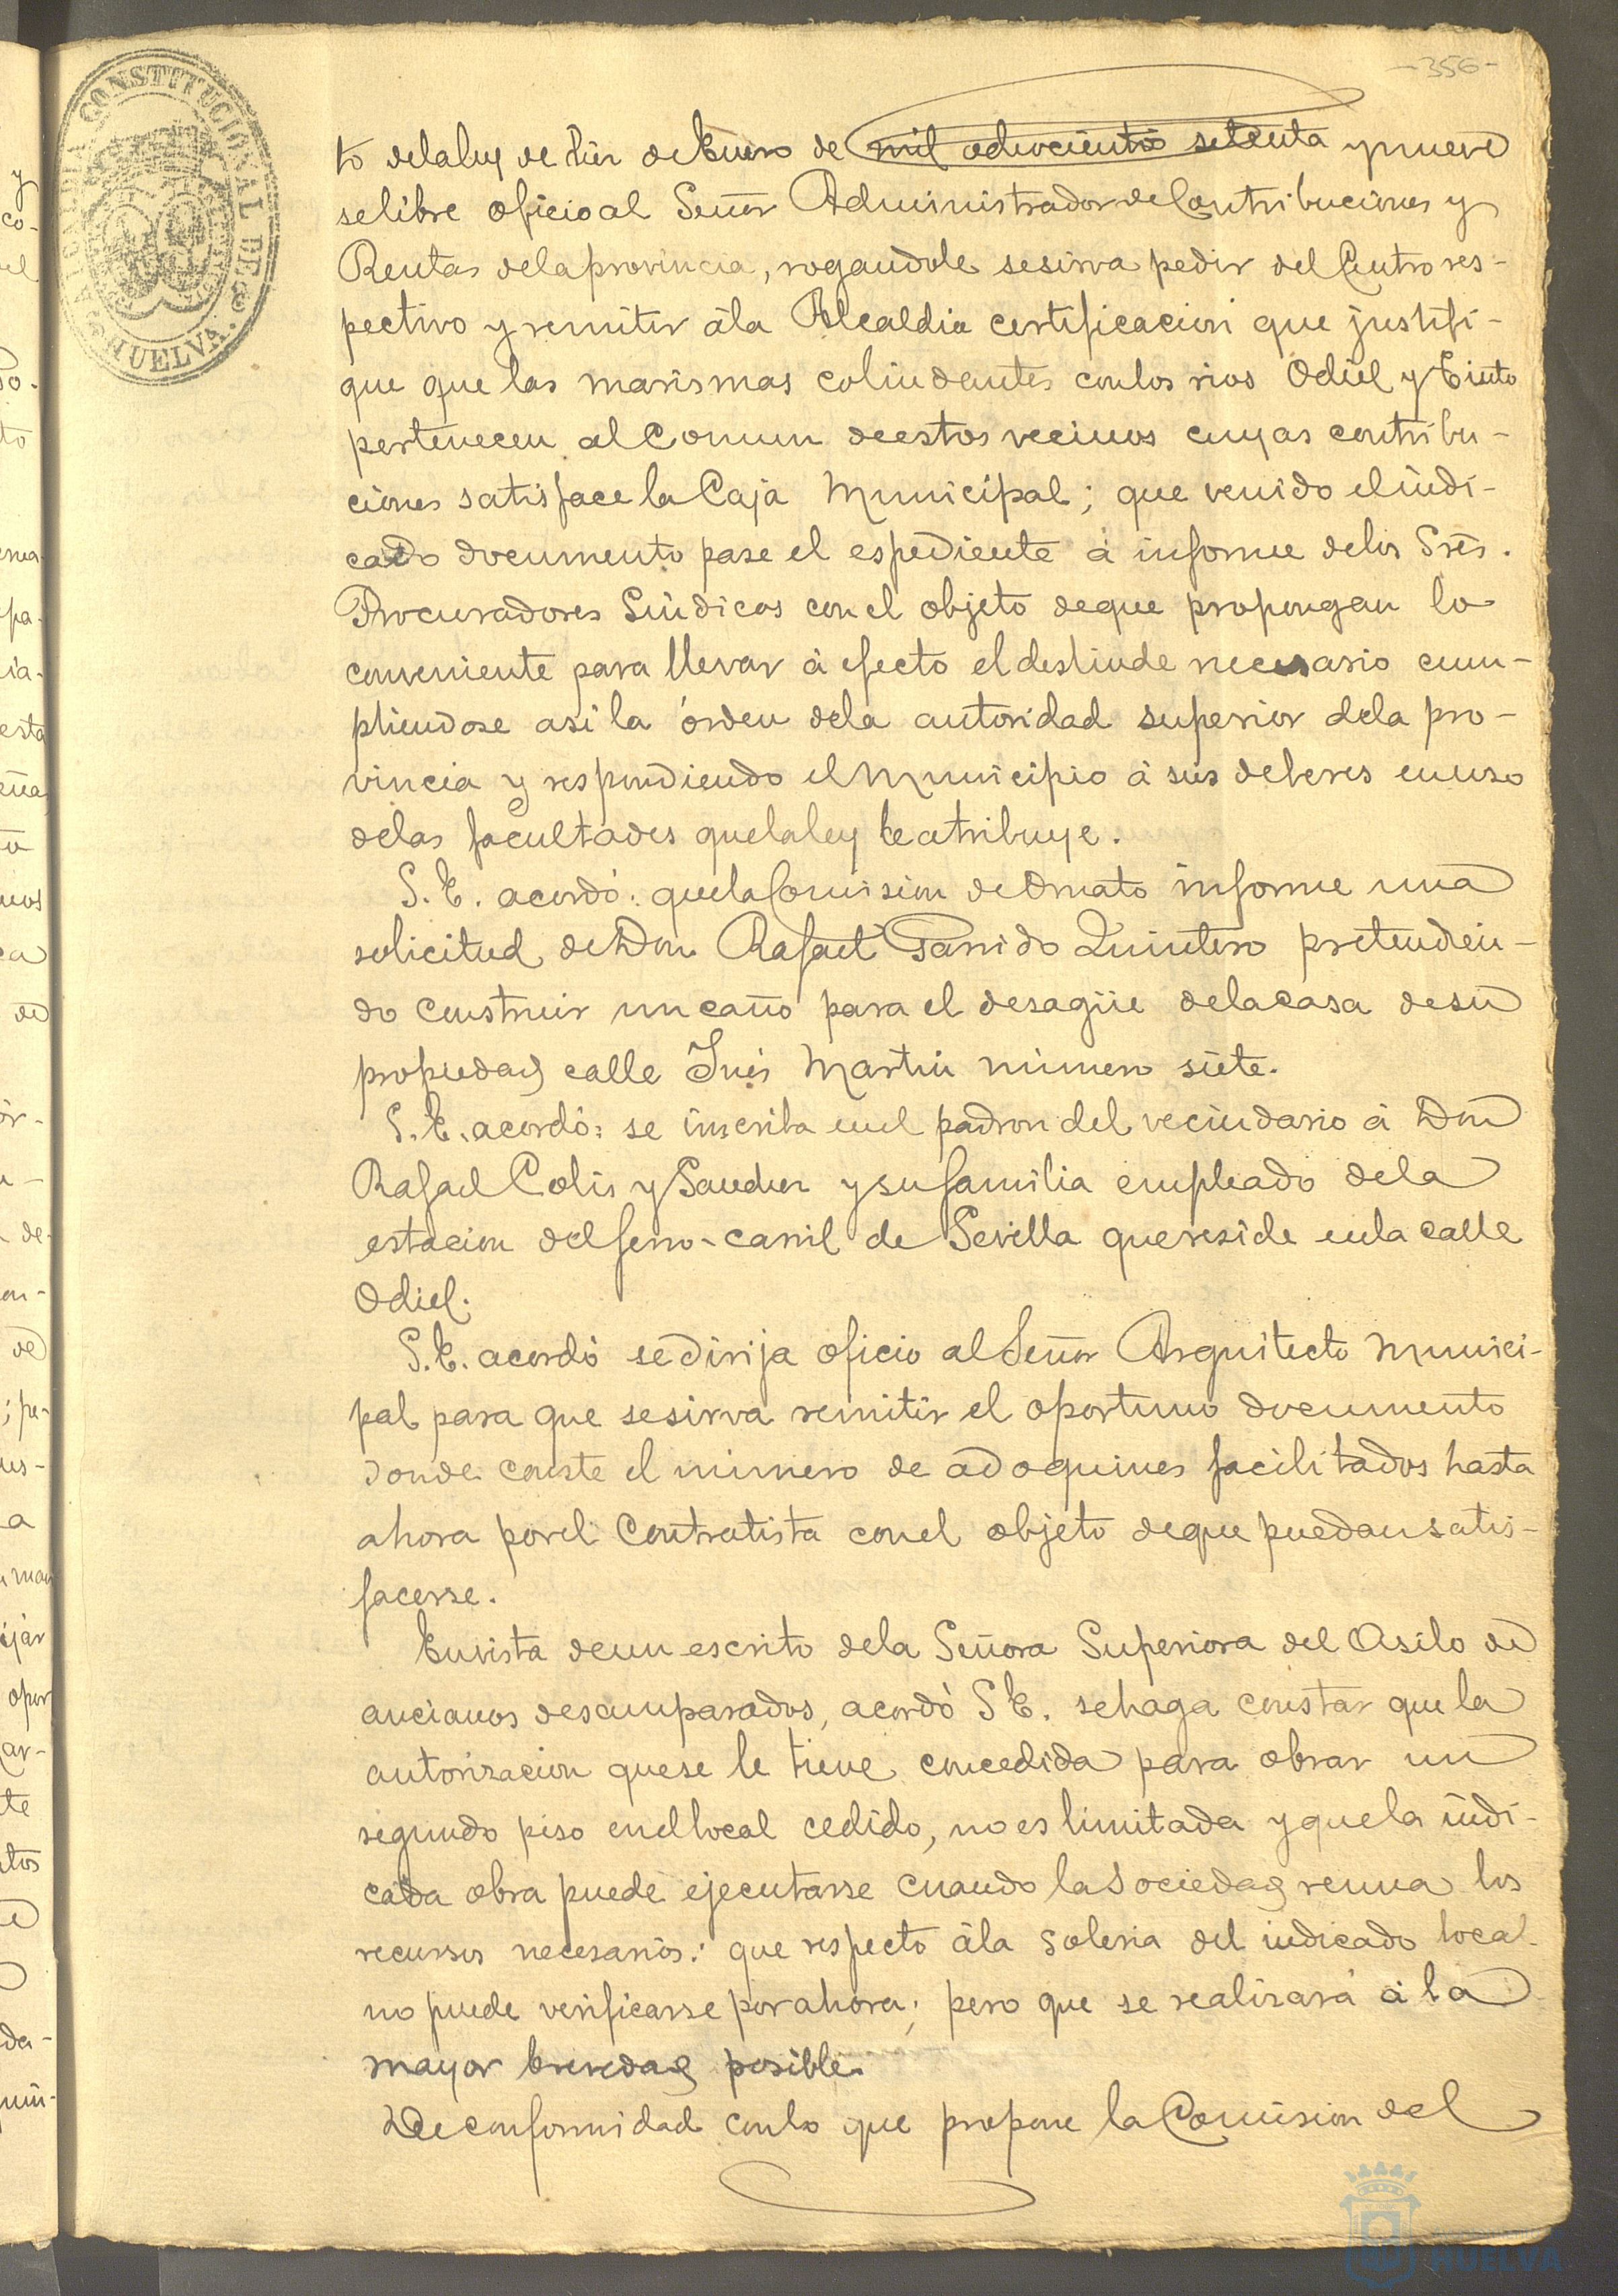 -356-
ALCALDIA CONSTITUCIONAL DE HUELVA.
to dela ley de diez de Enero de mil ochocientos setenta y nueve
se libre oficio al Señor Administrador de Contribuciones y
Rentas dela provincia, rogandole se sirva pedir del Centro res-
pectivo y remitir á la Alcaldia certificacion que justifi-
que que las marismas colindantes con los rios Odiel y Tinto
pertenecen al Comun de estos vecinos cuyas contribu-
ciones satisface la Caja Municipal; que venido el indi-
cado documento pase el espediente á informe delos Sres.
Procuradores Sindicos con el objeto de que propongan lo
conveniente para llevar á efecto el deslinde necesario cum-
pliendose asi la órden dela autoridad superior dela pro-
vincia y respondiendo el Municipio á sus deberes en uso
delas facultades que la ley le atribuye.
S. E. acordó: que la Comision de Ornato informe una
solicitud de Don Rafael Garrido Quintero pretendien-
do construir un caño para el desagüe dela casa de su
propiedad calle Ines Martin número siete.
S. E. acordó: se inscriba en el padron del vecindario á Don
Rafael Colis y Sanchez y su familia empleado dela
estacion del ferro-carril de Sevilla que reside en la calle
Odiel.
S. E. acordó se dirija oficio al Señor Arquitecto Munici-
pal para que se sirva remitir el oportuno documento
donde conste el número de adoquines facilitados hasta
ahora por el Contratista con el objeto de que puedan satis-
facerse.
En vista de un escrito dela Señora Superiora del Asilo de
ancianos desamparados, acordó S E. se haga constar que la
autorizacion que se le tiene concedida para obrar un
segundo piso en el local cedido, no es limitada y que la indi-
cada obra puede ejecutarse cuando la Sociedad reuna los
recursos necesarios: que respecto á la soleria del indicado local
no puede verificarse por ahora; pero que se realizará á la
mayor brevedad posible.
De conformidad con lo que propone la Comision del
HUELVA